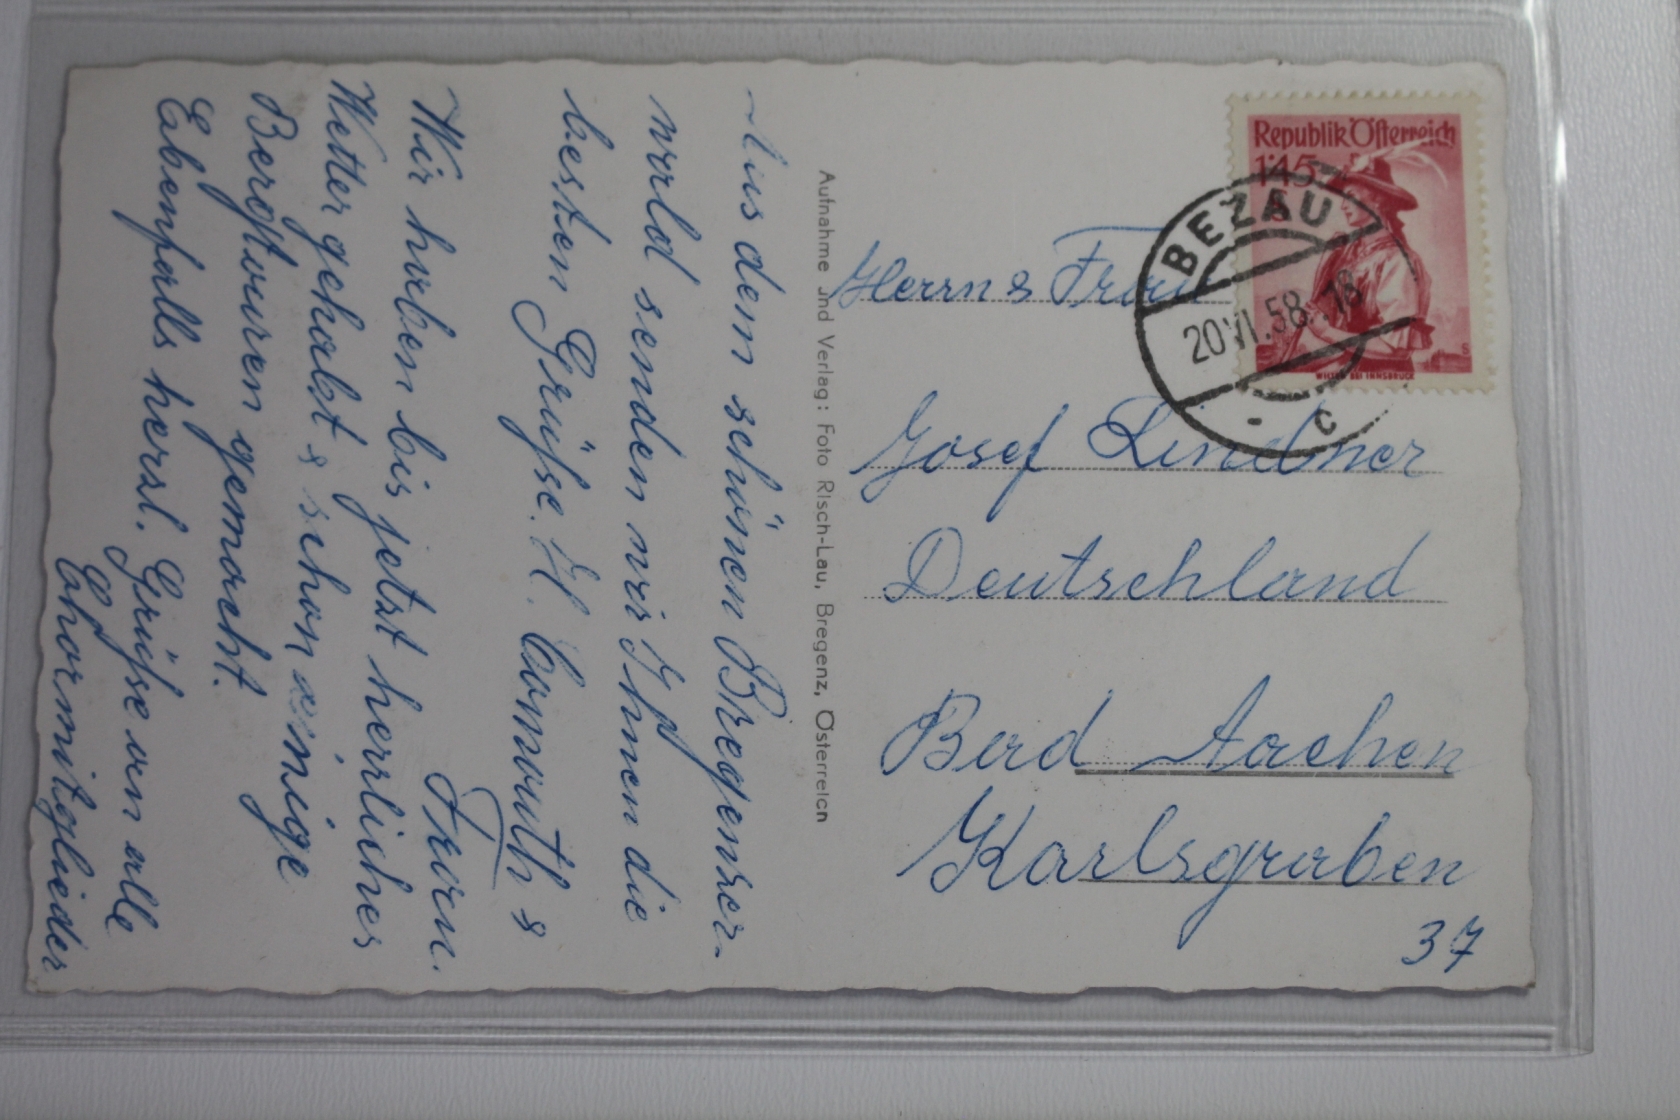 Aus dem schönen Bregenzer-
wald senden wir Ihnen die
besten Grüße. H. &
Frau.
Wir haben bis jetzt herrliches
Wetter gehabt & schon einige
Bergtouren gemacht.
Ebenfalls herzl. Grüße an alle
Chormitglieder
Aufnahme und Verlag: Foto Risch-Lau, Bregenz, Österreich
Republik Österreich
1·45
BEZAU
20.VI.58.-18
c
Herrn & Frau
Josef Lindner
Deutschland
Bad Aachen
Karlsgraben
37